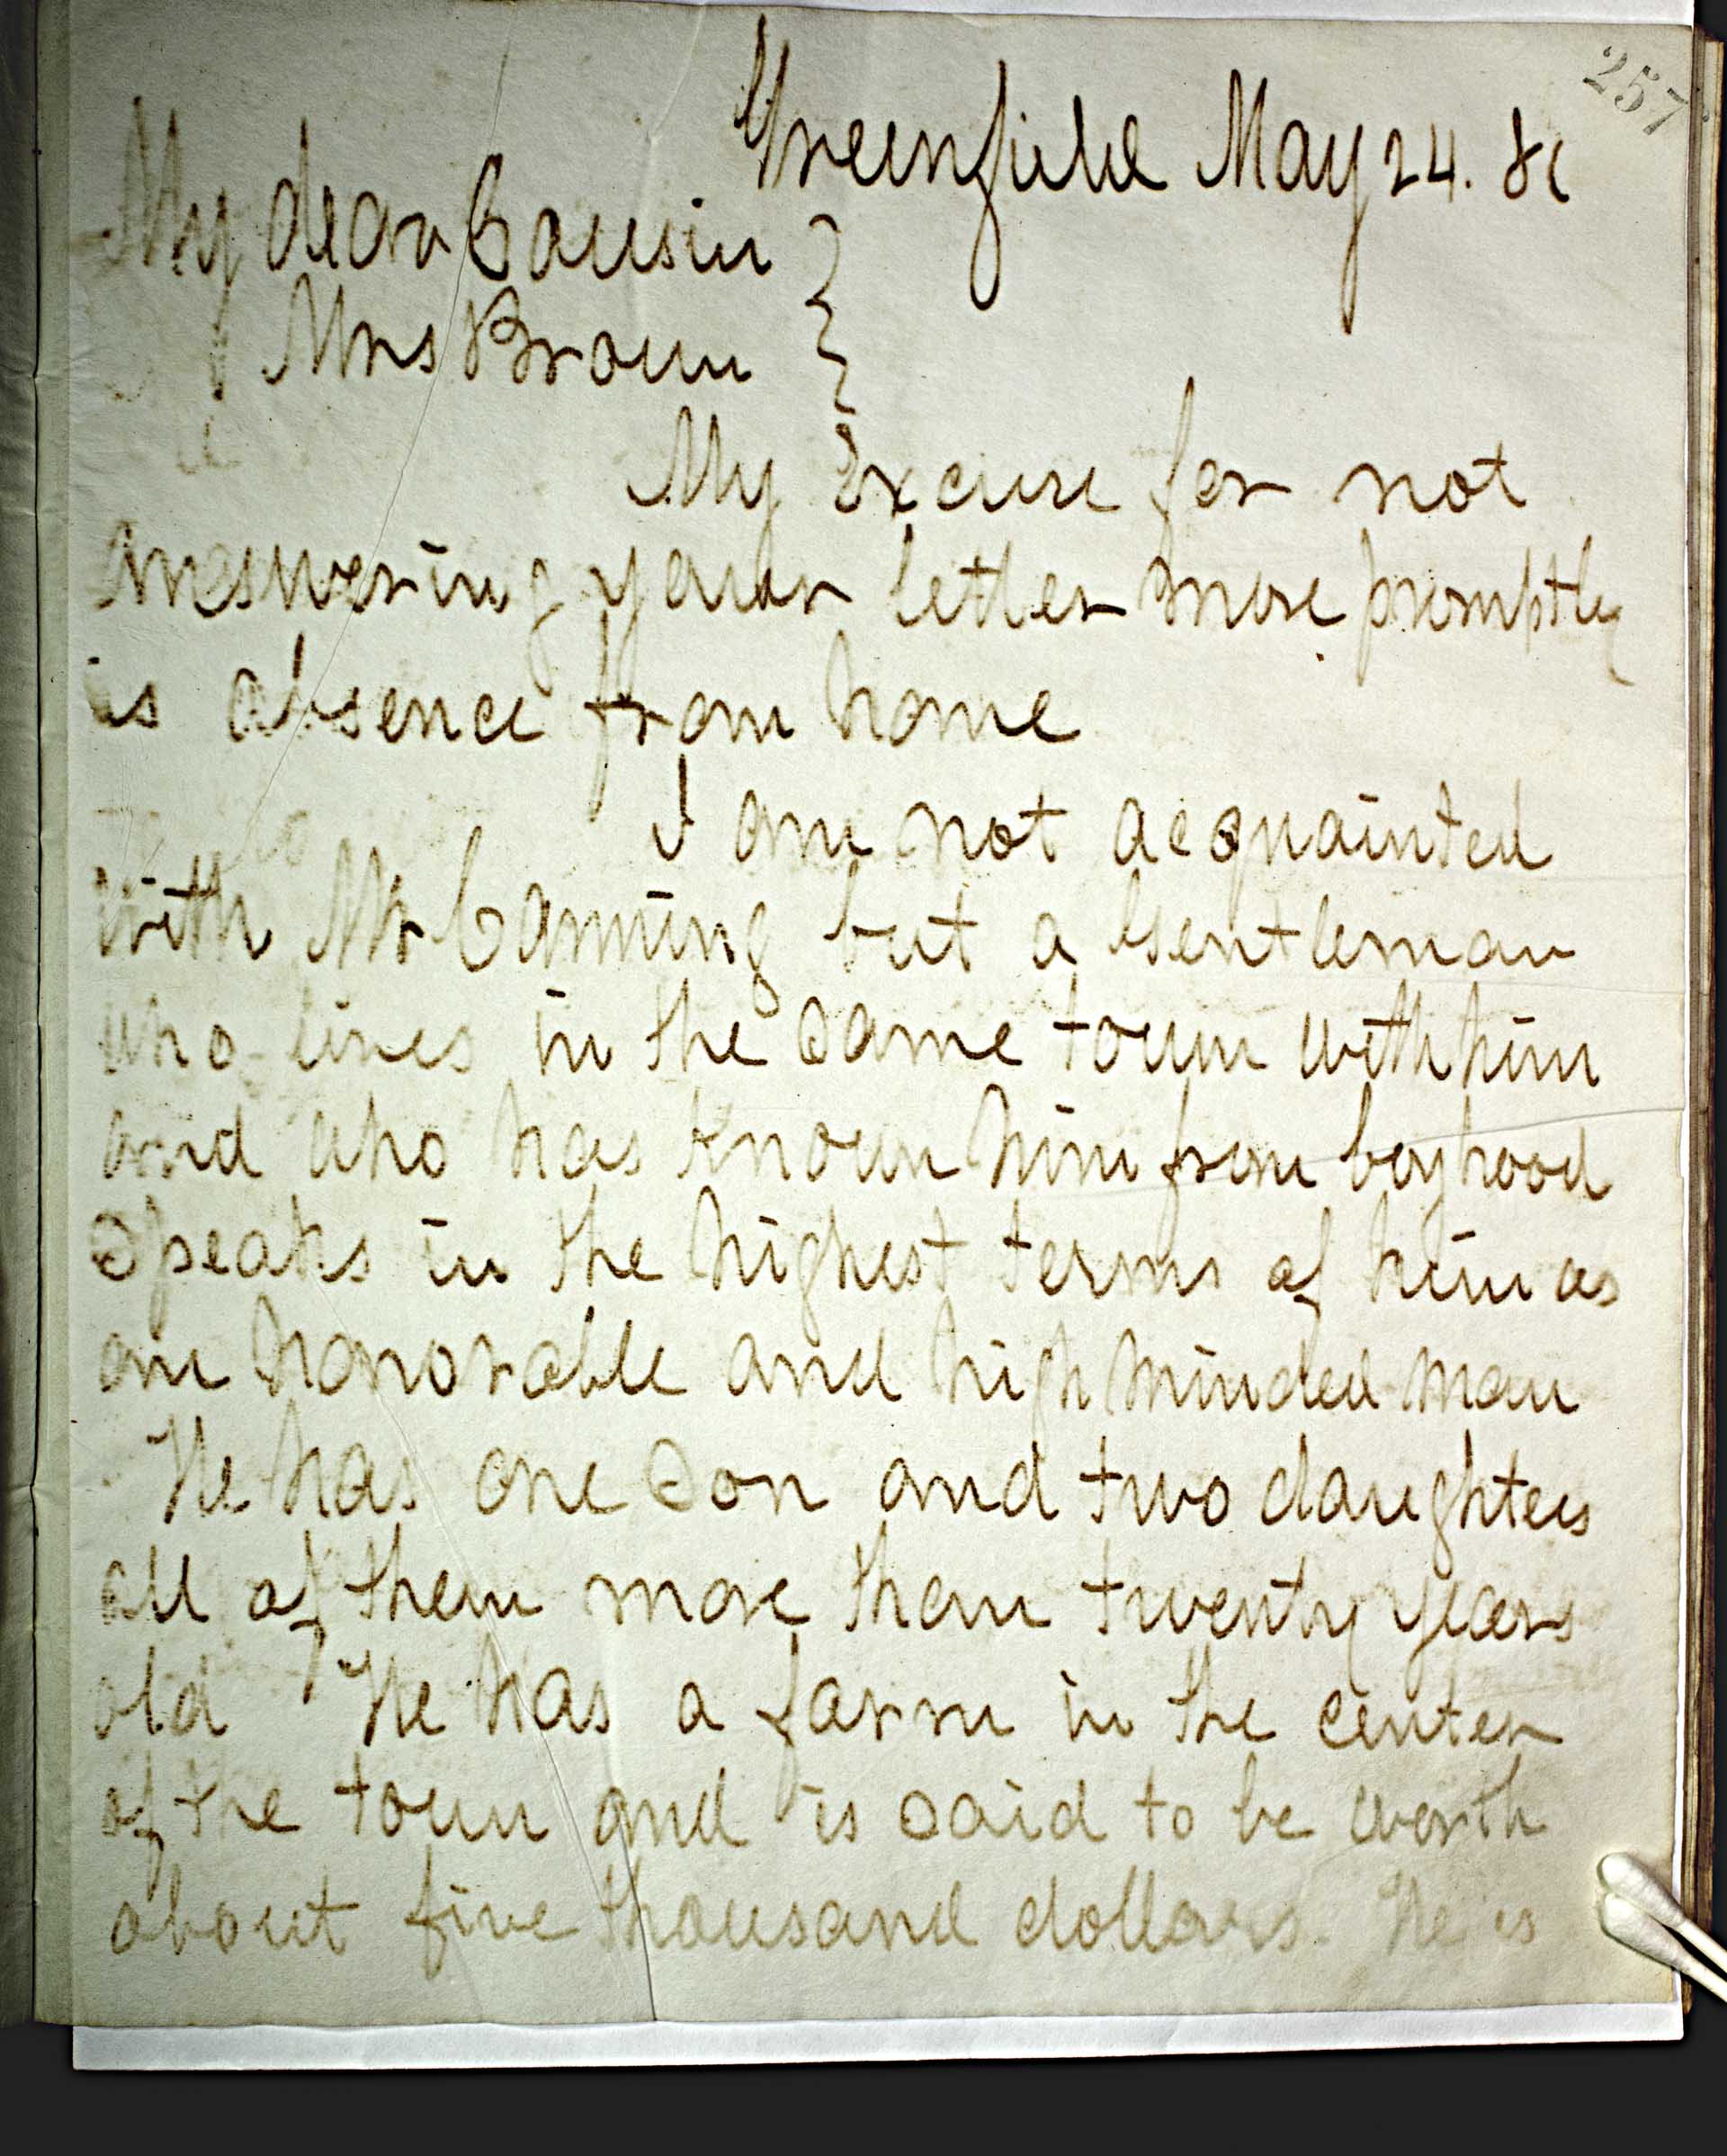 257
Greenfield May 24. 81
My dear Cousin
Mrs Brown
My Excuse for not
Answering your letter more promptly
is absence from home
I am not acquainted
with Mr Canning but a Gentleman
who lives in the same town with him
and who has known him from boyhood
Speaks in the highest terms of him as
an honorable and high minded man
He has one Son and two daughters
all of them more than twenty years
old He has a farm in the center
of the town and is said to be worth
about five thousand dollars. He is